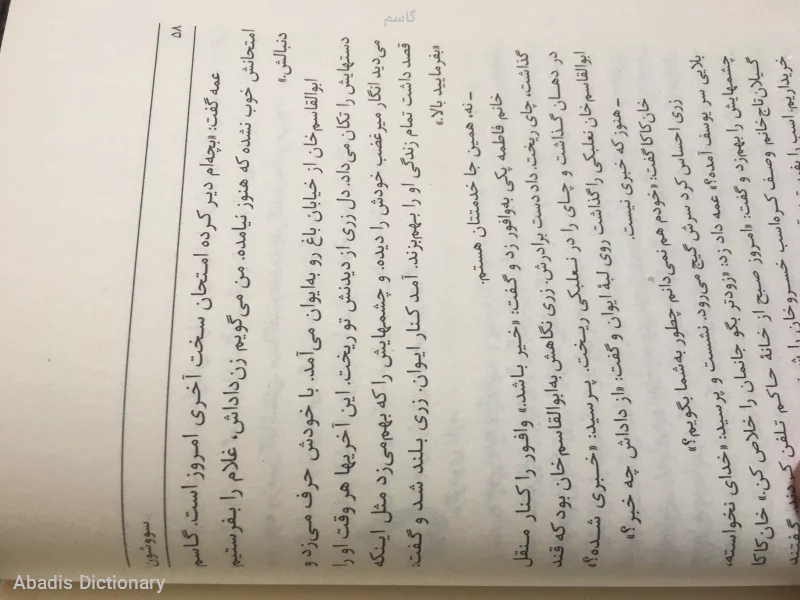 گاسم
۵۸
سووشون
عمه گفت: «بچه‌ام دیر کرده امتحان سخت آخری امروز است. گاسم
امتحانش خوب نشده که هنوز نیامده. من می‌گویم زن‌داداش، غلام را بفرستیم
دنبالش.»
ابوالقاسم‌خان از خیابان باغ رو به‌ایوان می‌آمد. با خودش حرف می‌زد و
دستهایش را تکان می‌داد. دل زری از دیدنش تو ریخت. این آخریها هر وقت او را
می‌دید انگار میرغضب خودش را دیده. و چشمهایش را که بهم‌می‌زد مثل اینکه
قصد داشت تمام زندگی او را بهم‌بزند. آمد کنار ایوان. زری بلند شد و گفت:
«بفرمایید بالا.»
ـ نه، همین جا خدمتتان هستم.
خانم فاطمه پکی به‌وافور زد و گفت: «خیر باشد.» وافور را کنار منقل
گذاشت، چای ریخت. داد دست برادرش. زری نگاهش به‌ابوالقاسم‌خان بود که قند
در دهان گذاشت و چای را در نعلبکی ریخت. پرسید: «خبری شده؟»
ابوالقاسم‌خان نعلبکی را گذاشت روی لبهٔ ایوان و گفت: «از داداش چه خبر؟»
ـ هنوز که خبری نیست.
خان‌کاکا گفت: «خودم هم نمی‌دانم چطور به‌شما بگویم؟»
زری احساس کرد سرش گیج می‌رود. نشست و پرسید: «خدای نخواسته،
بلایی سر یوسف آمده؟» عمه داد زد: «زودتر بگو جانمان را خلاص کن.» خان‌کاکا
چشمهایش را بهم‌زد و گفت: «امروز صبح از خانهٔ حاکم تلفن کردند. گفتند
گیلان‌تاج‌خانم وصف کره‌اسب خسروخان را
خریداریم. اسب را
Abadis Dictionary